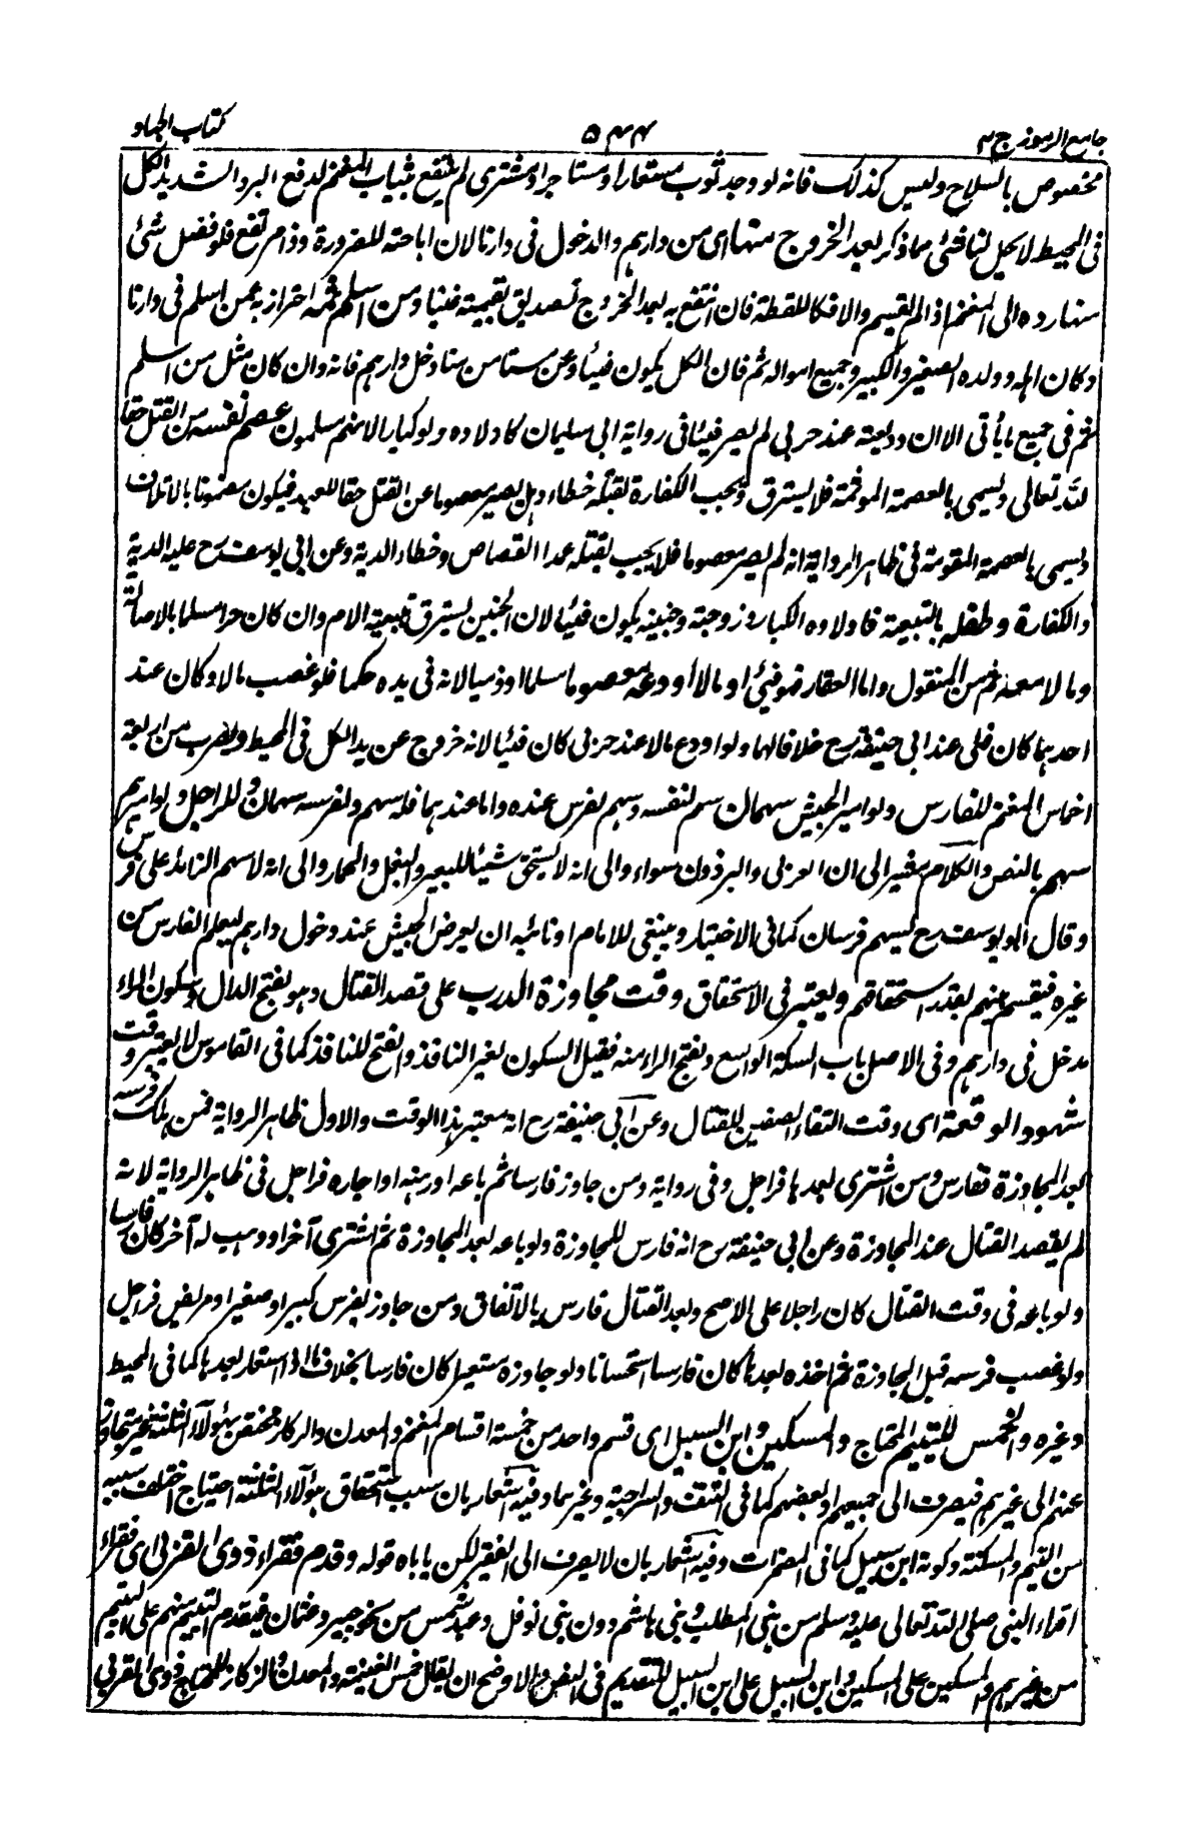 جامع الرموز ج ٣ ٥٤٤ كتاب الجهاد
مختصوص بالسلاح وليس كذلك فانه لو وجد ثوب مستعار او مستاجر او مشترى لم ينتفع بثياب المغنم لدفع البرد الشديد الكل
فى المحيط لا يحل لنا شئ مما ذكر بعد الخروج منها اى من دارهم والدخول فى دارنا لان اباحته للضرورة وذا مرتفع فلو فضل شئ
منها رده الى المغنم اذا لم يقسم والا فكا للقطة فان انتفع به بعد الخروج تصدق بقيمته غنيا ومن اسلم ثمه احترازبه عمن اسلم فى دارنا
وكان اهله وولده الصغير والكبير وجميع امواله ثم فان الكل يكون فيئا وعن مستامن منا دخل دارهم فانه وان كان مثل من اسلم
ثم فى جميع ما يأتى الا ان وديعته عند حربى لم يصر فيئا فى رواية ابى سليمان كاولاده ولو كبارا لانهم مسلمون عصم نفسه من القتل حقا
لله تعالى ويسمى بالعصمة الموثمة فلا يسترق ويجب الكفارة لقتله خطاء وهل يصير معصوما عن القتل حقا للعبد فيكون مضمونا بالاتلاف
ويسمى بالعصمة المقومة فى ظاهر الرواية انه لم يصر معصوما فلا يجب بقتله عمدا القصاص وخطاء الدية وعن ابى يوسف رح عليه الدية
والكفارة وطفله بالتبعية فاولاده الكبار وزوجته وجنينه يكون فيئا لان الجنين يسترق بتبعية الام وان كان حرا مسلما بالاصالة
ومالا معه ثم من المنقول واما العقار فهو فيئ او مالا أودعه معصوما مسلما او ذميا لانه فى يده حكما فلو غصب مالا وكان عند
احدهما كان فيئ عند ابى حنيفة رح خلافا لهما ولو اودع مالا عند حربى كان فيئا لانه خروج عن يد الكل فى المحيط ويضرب من اربعة
اخماس المغنم للفارس ولو امير الجيش سهمان سهم لنفسه وسهم لفرس عنده واما عندهما فله سهم ولفرسه سهمان وللراجل ولو اميرهم
سهم بالنص والكلام مشير الى ان العربى والبرذون سواء والى انه لا يستحق شيئا للبعير والبغل والحمار والى انه لا سهم الزائد على فرس
وقال ابو يوسف رح يسهم فرسان كما فى الاختيار وينبغى للامام او نائبه ان يعرض الجيش عند دخول دارهم ليعلم الفارس من
غيره فيقسم بينهم بقدر استحقاقهم ويعتبر فى الاستحقاق وقت مجاوزة الدرب على قصد القتال وهو بفتح الدال وسكون الراء
مدخل فى دارهم وفى الاصل باب السكة الواسع وبفتح الراء منه فقيل السكون لغير النافذ والفتح للنافذ كما فى القاموس لا يعتبر وقت
شهود الوقعة اى وقت التقاء الصفين للقتال وعن ابى حنيفة رح انه معتبر بهذا الوقت والاول ظاهر الرواية فمن هلك فرسه
بعد المجاوزة ففارس ومن اشترى بعدها فراجل وفى رواية ومن جاوز فارسا ثم باعه او رهنه او اجاره فراجل فى ظاهر الرواية لانه
لم يقصد القتال عند المجاوزة وعن ابى حنيفة رح انه فارس للمجاوزة ولو باعه بعد المجاوزة ثم اشترى آخر او وهب له آخر كان فارسا
ولو باعه فى وقت القتال كان راجلا على الاصح وبعد القتال فارس بالاتفاق ومن جاوز بفرس كبير او صغير او مريض فراجل
ولو غصب فرسه قبل المجاوزة ثم اخذه بعدها كان فارسا استحسانا ولو جاوزه مستعيرا كان فارسا بخلاف ما اذا استعار بعدها كما فى المحيط
وغيره والخمس لليتيم المحتاج والمسكين وابن السبيل اى قسم واحد من خمسة اقسام المغنم والمعدن والركاز مختص بهؤلاء الثلثة غير متجاوز
عنهم الى غيرهم فيصرف الى جميعهم او بعضهم كما فى النتف والسراجية وغيرهما وفيه اشعار بان سبب استحقاق هؤلاء الثلثة احتياج اختلف سببه
من اليتم والمسكنة وكونه ابن سبيل كما فى المضمرات وفيه اشعار بان لا يصرف الى الفقير لكن يا باه قوله وقدم فقراء ذوى القربى اى فقراء
اقرباء النبى صلى الله تعالى عليه وسلم من بنى المطلب وبنى هاشم دون بنى نوفل وعبد شمس من نحو جبير وعثمان فيقدم اليتيم منهم على اليتيم
من غيرهم والمسكين على المسكين وابن السبيل على ابن السبيل للتقديم فى النص والاوضح ان يقال خمس الغنيمة والمعدن والركاز للمحتاج ذوى القربى